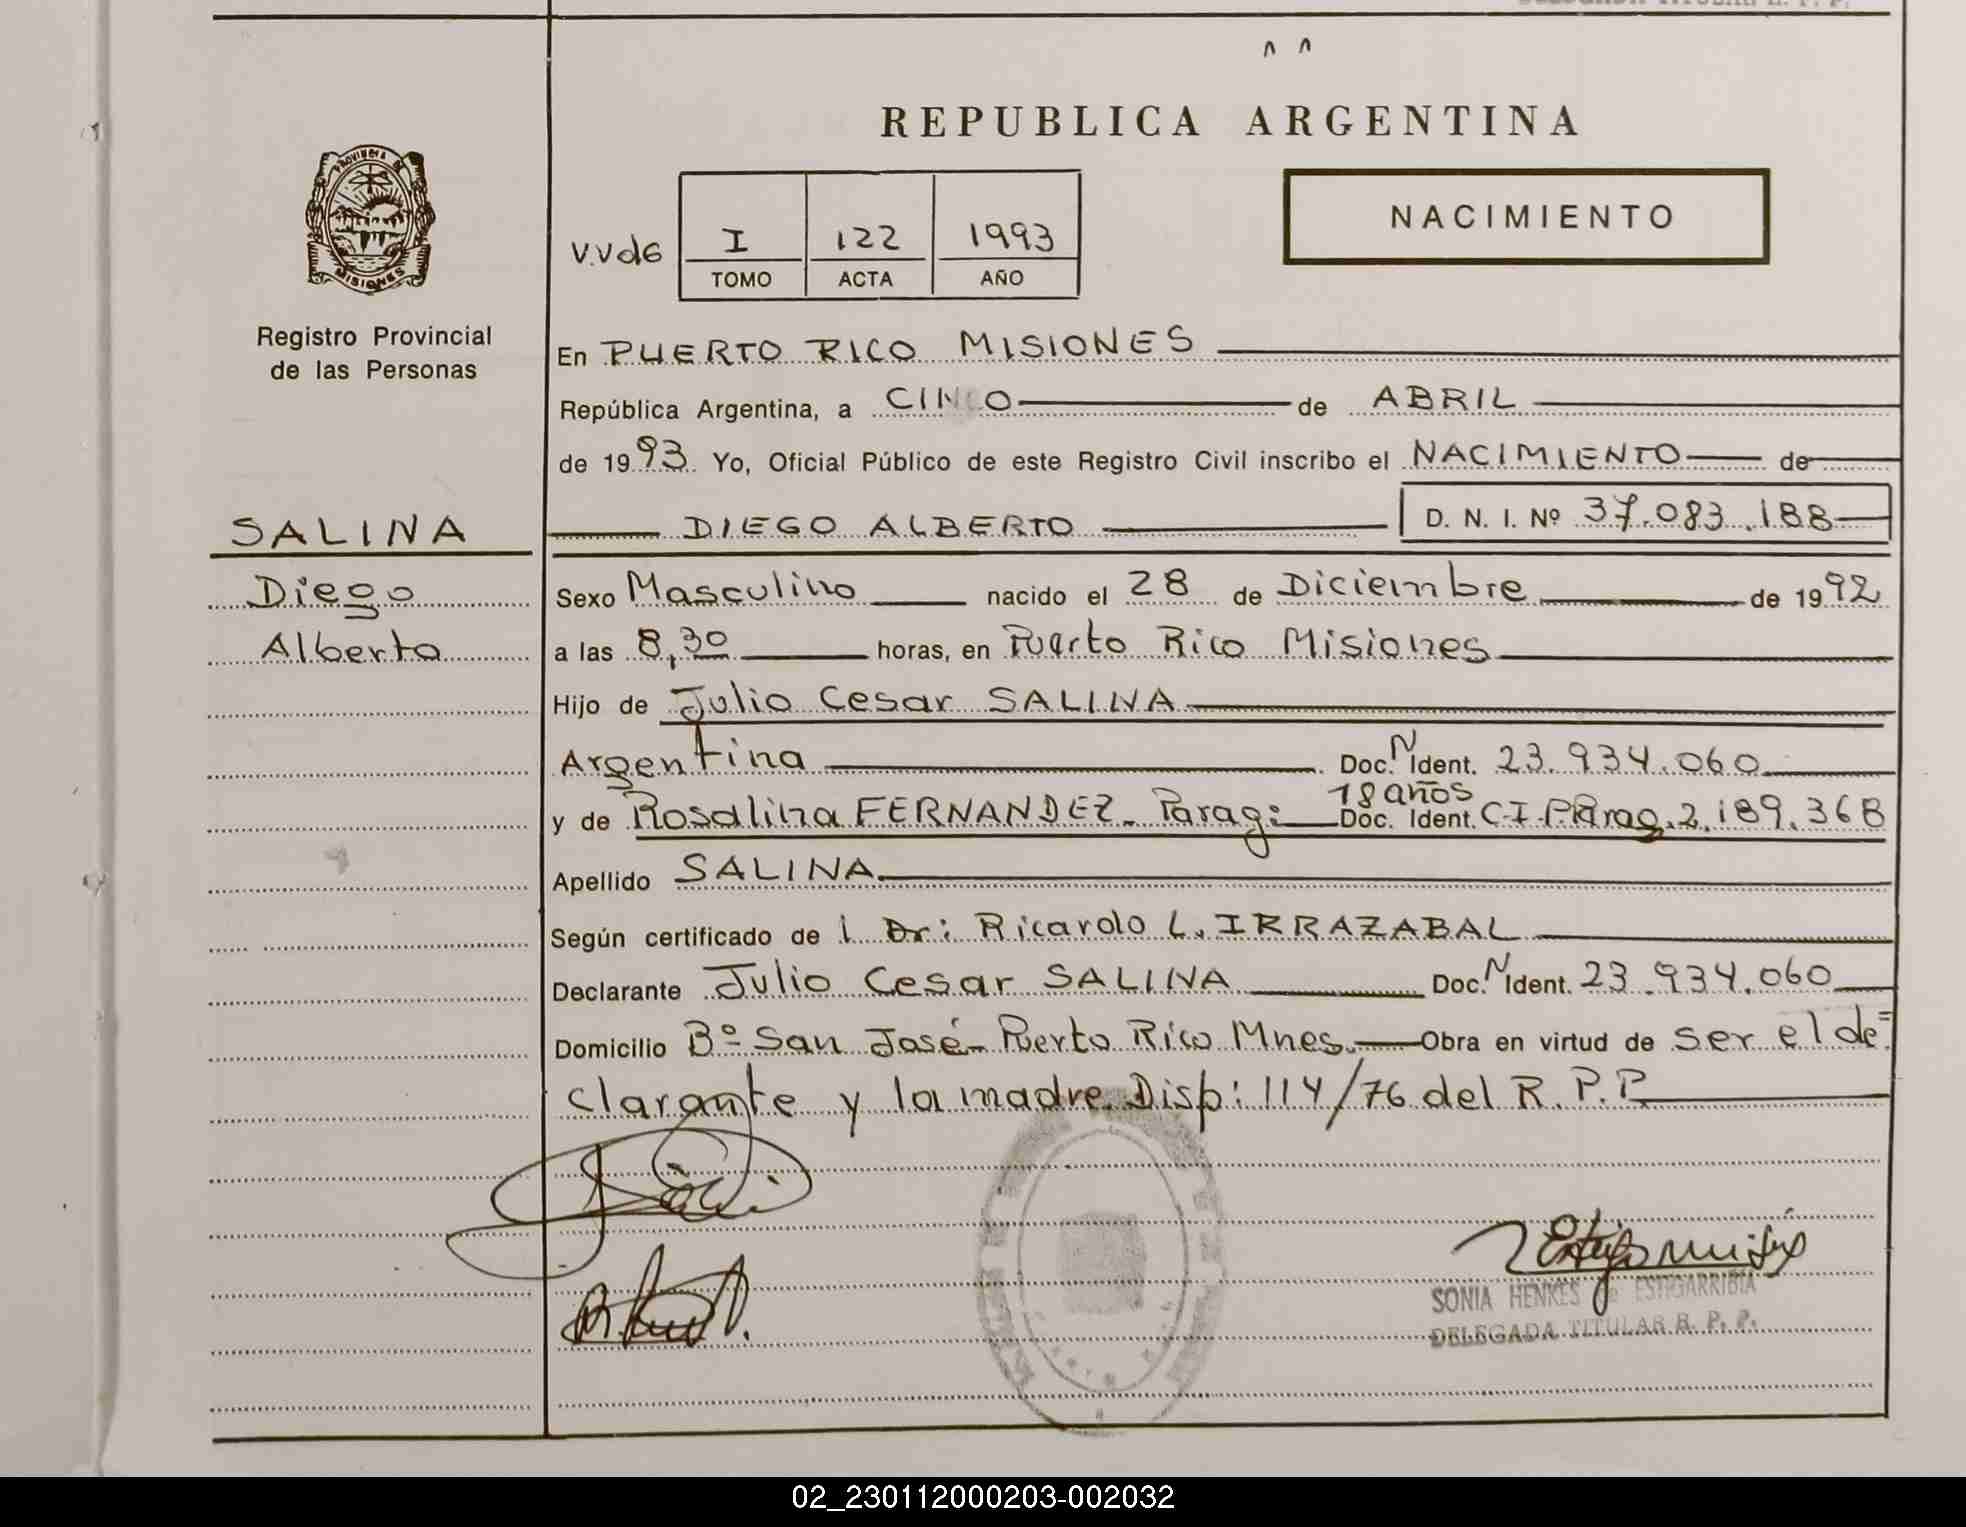 REPUBLICA ARGENTINA
PROVINCIA DE
MISIONES
Registro Provincial
de las Personas
NACIMIENTO
V.Vd6 I 122 1993
TOMO ACTA AÑO
En PUERTO RICO MISIONES
República Argentina, a CINCO de ABRIL
de 1993 Yo, Oficial Público de este Registro Civil inscribo el NACIMIENTO de
SALINA
DIEGO ALBERTO D. N. I. Nº 37.083.188
Diego
Alberto
Sexo Masculino nacido el 28 de Diciembre de 1992
a las 8,30 horas, en Puerto Rico Misiones
Hijo de Julio Cesar SALINA
Argentina Doc. N Ident. 23.934.060
18 años
y de Rosalina FERNANDEZ. Parag: Doc. Ident. C.I. Parag. 2.189.368
Apellido SALINA
Según certificado de l Dr: Ricardo L. IRRAZABAL
Declarante Julio Cesar SALINA Doc. N Ident. 23.934.060
Domicilio Bº San José- Puerto Rico Mnes. Obra en virtud de ser el de=
clarante y la madre. Disp: 114/76 del R.P.P.
SONIA HENKES de ESTIGARRIBIA
DELEGADA TITULAR R. P. P.
02_230112000203-002032